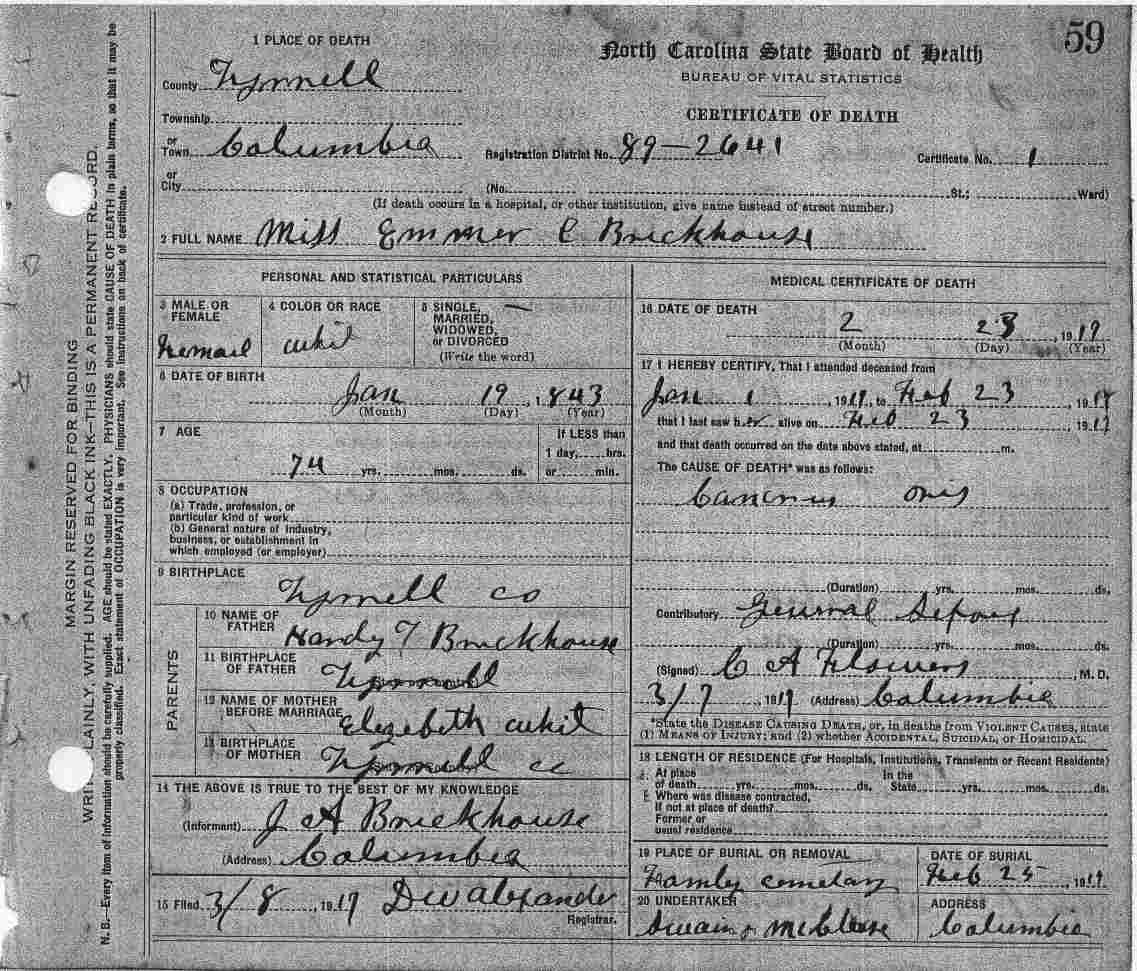 59
North Carolina State Board of Health
BUREAU OF VITAL STATISTICS
CERTIFICATE OF DEATH
1 PLACE OF DEATH
County Tyrrell
Township
or
Town Columbia
Registration District No. 89-2641
Certificate No. 1
or
City
(No. St.; Ward)
(If death occurs in a hospital, or other institution, give name instead of street number.)
2 FULL NAME Miss Emmer C Brickhouse
PERSONAL AND STATISTICAL PARTICULARS
3 MALE OR FEMALE
Femail
4 COLOR OR RACE
whit
5 SINGLE,
MARRIED,
WIDOWED,
or DIVORCED
(Write the word)
6 DATE OF BIRTH
Jan 19, 1843
(Month) (Day) (Year)
7 AGE
74 yrs. mos. ds.
If LESS than
1 day, hrs.
or min.
8 OCCUPATION
(a) Trade, profession, or
particular kind of work
(b) General nature of industry,
business, or establishment in
which employed (or employer)
9 BIRTHPLACE
Tyrrell co
PARENTS
10 NAME OF
FATHER
Hardy T Brickhouse
11 BIRTHPLACE
OF FATHER
Tyrrell
12 NAME OF MOTHER
BEFORE MARRIAGE
Elezebeth whit
13 BIRTHPLACE
OF MOTHER
Tyrrell co
14 THE ABOVE IS TRUE TO THE BEST OF MY KNOWLEDGE
(Informant) J A Brickhouse
(Address) Columbia
15 Filed 3/8, 1917 DW Alexander
Registrar.
MEDICAL CERTIFICATE OF DEATH
16 DATE OF DEATH
2 23, 1917
(Month) (Day) (Year)
17 I HEREBY CERTIFY, That I attended deceased from
Jan 1, 1917, to Feb 23, 1917
that I last saw her alive on Feb 23 1917
and that death occurred on the date above stated, at m.
The CAUSE OF DEATH* was as follows:
Cancrus oris
(Duration) yrs. mos. ds.
Contributory General
(Duration) yrs. mos. ds.
(Signed) C A Flowers, M. D.
3/7, 1917 (Address) Columbia
*State the DISEASE CAUSING DEATH, or, in deaths from VIOLENT CAUSES, state
(1) MEANS OF INJURY; and (2) whether ACCIDENTAL, SUICIDAL, OR HOMICIDAL.
18 LENGTH OF RESIDENCE (For Hospitals, Institutions, Transients or Recent Residents)
At place
of death yrs. mos. ds.
In the
State yrs. mos. ds.
Where was disease contracted,
if not at place of death?
Former or
usual residence
19 PLACE OF BURIAL OR REMOVAL
Famly cemetary
DATE OF BURIAL
Feb 25, 1917
20 UNDERTAKER
Swain & McClease
ADDRESS
Columbia
MARGIN RESERVED FOR BINDING
LAINLY, WITH UNFADING BLACK INK—THIS IS A PERMANENT RECORD.
N. B.—Every item of information should be carefully supplied. AGE should be stated EXACTLY. PHYSICIANS should state CAUSE OF DEATH in plain terms, so that it may be
properly classified. Exact statement of OCCUPATION is very important. See instructions on back of certificate.